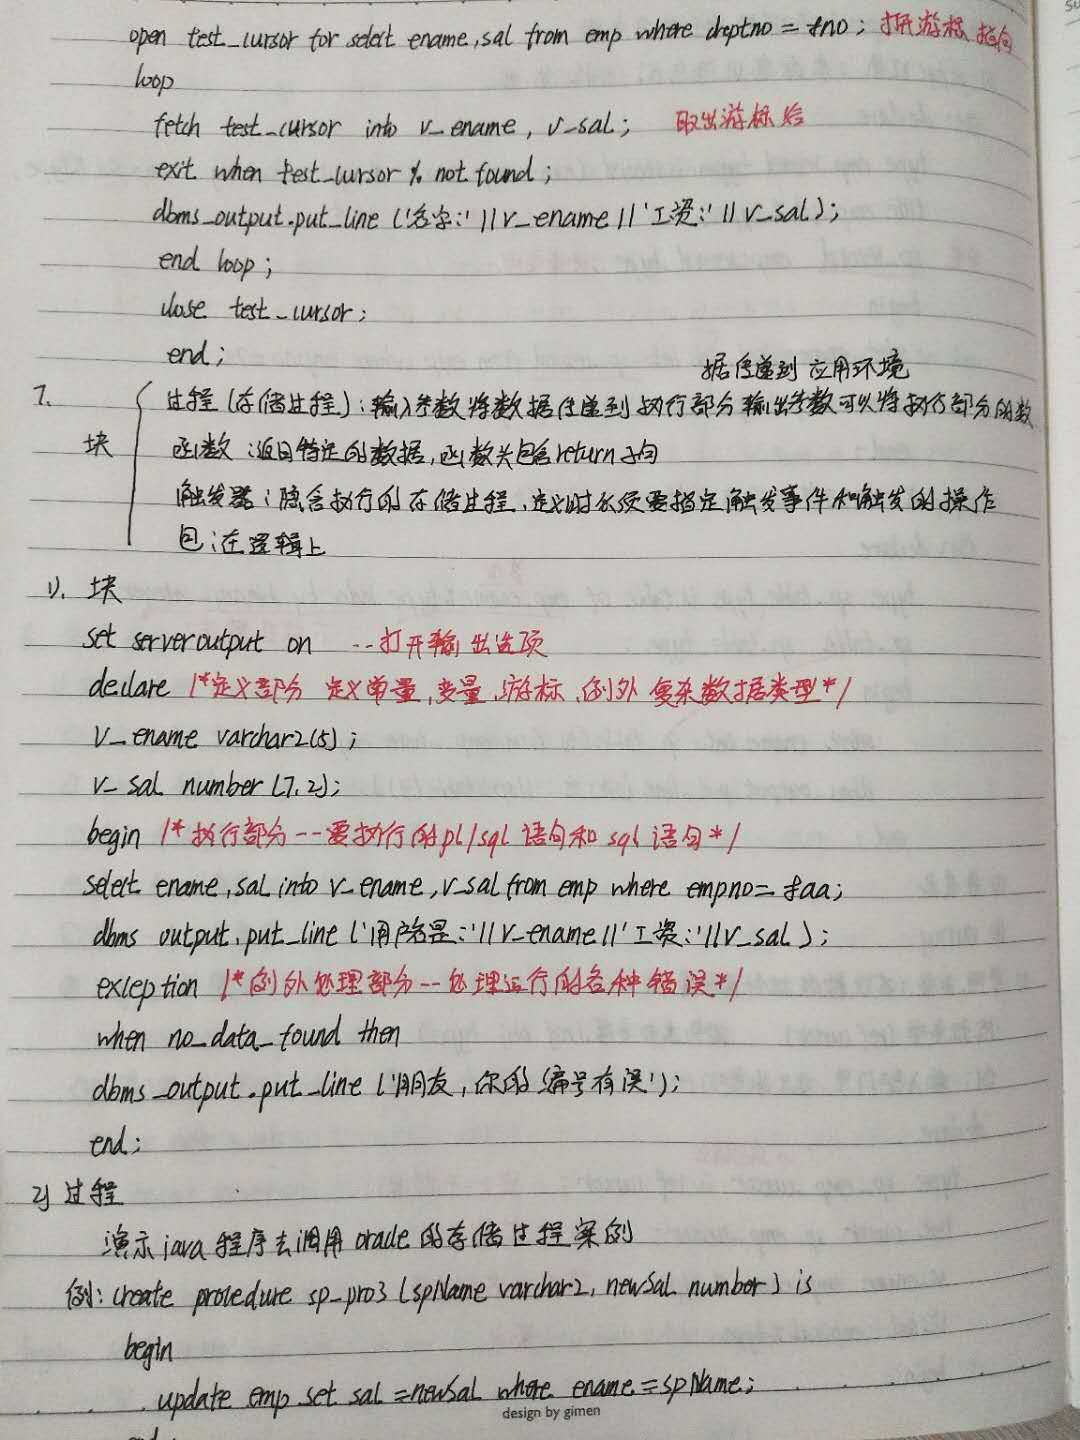 open test_cursor for select ename,sal from emp where deptno = &no; 打开游标 指向
loop
fetch test_cursor into v_ename, v_sal; 取出游标给
exit when test_cursor % not found;
dbms_output.put_line ('名字:'||v_ename||'工资:'||v_sal);
end loop;
close test_cursor;
end;
据传递到 应用环境
7. 过程(存储过程):输入参数将数据传递到执行部分 输出参数可以将执行部分的数
块 函数:返回特定的数据,函数头包含return子句
触发器:隐含执行的存储过程,定义时必须要指定触发事件和触发的操作
包:在逻辑上
1). 块
set serveroutput on --打开输出选项
declare /*定义部分 定义常量,变量,游标,例外 复杂数据类型*/
v_ename varchar2(5);
v_sal number(7,2);
begin /*执行部分--要执行的pl/sql 语句和sql 语句*/
select ename,sal into v_ename,v_sal from emp where empno= &aa;
dbms output.put_line('用户名是:'||v_ename||'工资:'||v_sal);
exception /*例外处理部分--处理运行的各种错误*/
when no_data_found then
dbms_output.put_line('朋友,你的编号有误');
end;
2) 过程
演示java程序去调用oracle的存储过程案例
例: create procedure sp_pro3 (spName varchar2, newSal number) is
begin
update emp set sal =newSal where ename=spName;
design by gimen
end;